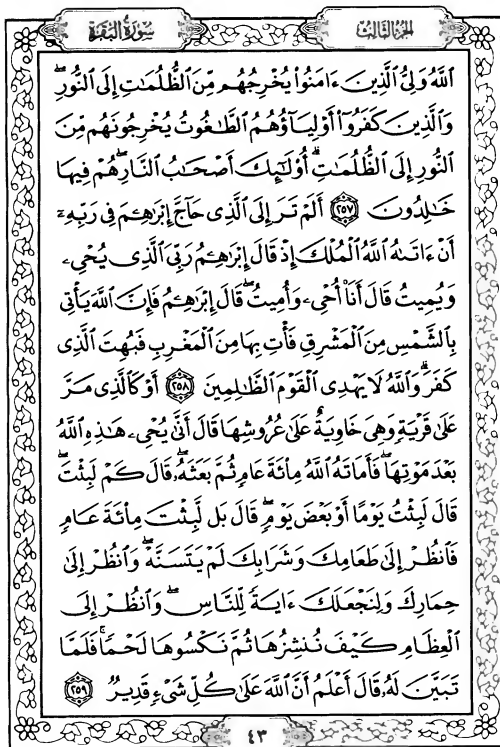 سُورَةُ البَقَرَة
الجُزءُ الثَّالِث
ٱللَّهُ وَلِىُّ ٱلَّذِينَ ءَامَنُوا۟ يُخْرِجُهُم مِّنَ ٱلظُّلُمَـٰتِ إِلَى ٱلنُّورِۖ
وَٱلَّذِينَ كَفَرُوٓا۟ أَوْلِيَآؤُهُمُ ٱلطَّـٰغُوتُ يُخْرِجُونَهُم مِّنَ
ٱلنُّورِ إِلَى ٱلظُّلُمَـٰتِۗ أُو۟لَـٰٓئِكَ أَصْحَـٰبُ ٱلنَّارِۖ هُمْ فِيهَا
خَـٰلِدُونَ ٢٥٧ أَلَمْ تَرَ إِلَى ٱلَّذِى حَآجَّ إِبْرَٰهِـۧمَ فِى رَبِّهِۦٓ
أَنْ ءَاتَىٰهُ ٱللَّهُ ٱلْمُلْكَ إِذْ قَالَ إِبْرَٰهِـۧمُ رَبِّىَ ٱلَّذِى يُحْىِۦ
وَيُمِيتُ قَالَ أَنَا۠ أُحْىِۦ وَأُمِيتُۖ قَالَ إِبْرَٰهِـۧمُ فَإِنَّ ٱللَّهَ يَأْتِى
بِٱلشَّمْسِ مِنَ ٱلْمَشْرِقِ فَأْتِ بِهَا مِنَ ٱلْمَغْرِبِ فَبُهِتَ ٱلَّذِى
كَفَرَۗ وَٱللَّهُ لَا يَهْدِى ٱلْقَوْمَ ٱلظَّـٰلِمِينَ ٢٥٨ أَوْ كَٱلَّذِى مَرَّ
عَلَىٰ قَرْيَةٍ وَهِىَ خَاوِيَةٌ عَلَىٰ عُرُوشِهَا قَالَ أَنَّىٰ يُحْىِۦ هَـٰذِهِ ٱللَّهُ
بَعْدَ مَوْتِهَاۖ فَأَمَاتَهُ ٱللَّهُ مِا۟ئَةَ عَامٍ ثُمَّ بَعَثَهُۥۖ قَالَ كَمْ لَبِثْتَۖ
قَالَ لَبِثْتُ يَوْمًا أَوْ بَعْضَ يَوْمٍۖ قَالَ بَل لَّبِثْتَ مِا۟ئَةَ عَامٍ
فَٱنظُرْ إِلَىٰ طَعَامِكَ وَشَرَابِكَ لَمْ يَتَسَنَّهْۖ وَٱنظُرْ إِلَىٰ
حِمَارِكَ وَلِنَجْعَلَكَ ءَايَةً لِّلنَّاسِۖ وَٱنظُرْ إِلَى
ٱلْعِظَامِ كَيْفَ نُنشِزُهَا ثُمَّ نَكْسُوهَا لَحْمًاۚ فَلَمَّا
تَبَيَّنَ لَهُۥ قَالَ أَعْلَمُ أَنَّ ٱللَّهَ عَلَىٰ كُلِّ شَىْءٍ قَدِيرٌ ٢٥٩
٤٣